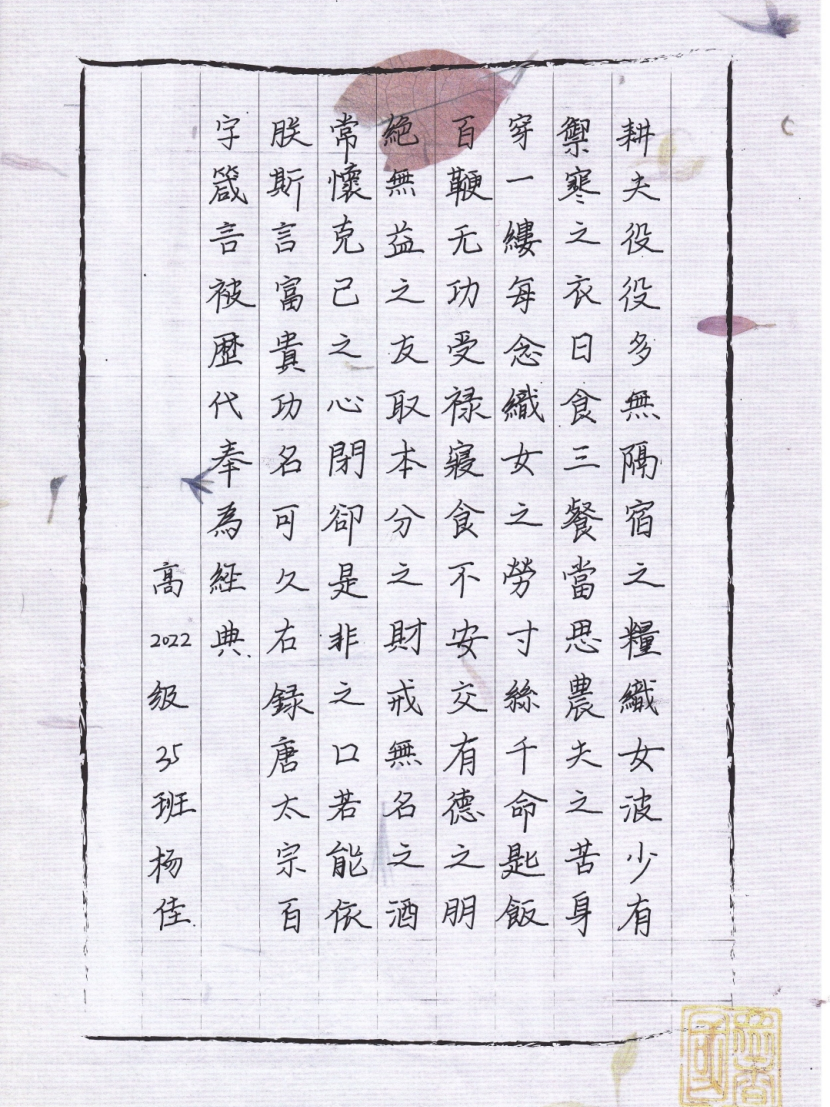 耕夫役役多無隔宿之糧織女波少有
禦寒之衣日食三餐當思農夫之苦身
穿一縷每念織女之勞寸絲千命匙飯
百鞭无功受禄寢食不安交有德之朋
絶無益之友取本分之財戒無名之酒
常懷克己之心閉卻是非之口若能依
朕斯言富貴功名可久右録唐太宗百
字箴言被歴代奉為經典
高2022级35班杨佳